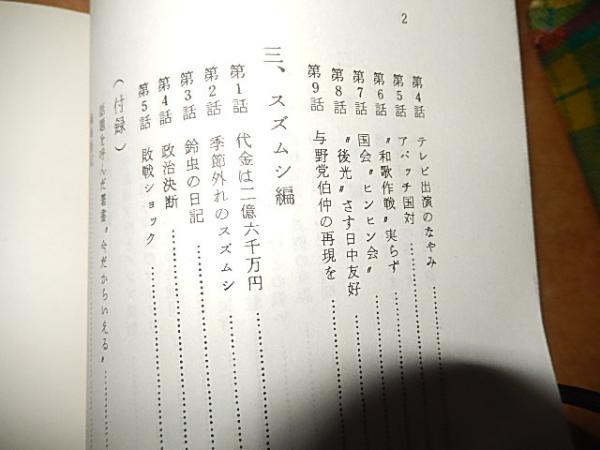 2
第4話 テレビ出演のなやみ
第5話 アパッチ国対
第6話 〝和歌作戦〟実らず
第7話 国会〝ヒンヒン会〟
第8話 〝後光〟さす日中友好
第9話 与野党伯仲の再現を
三、スズムシ編
第1話 代金は二億六千万円
第2話 季節外れのスズムシ
第3話 鈴虫の日記
第4話 政治決断
第5話 敗戦ショック
（付録）
話題を呼んだ著書〝今だからいえる〟